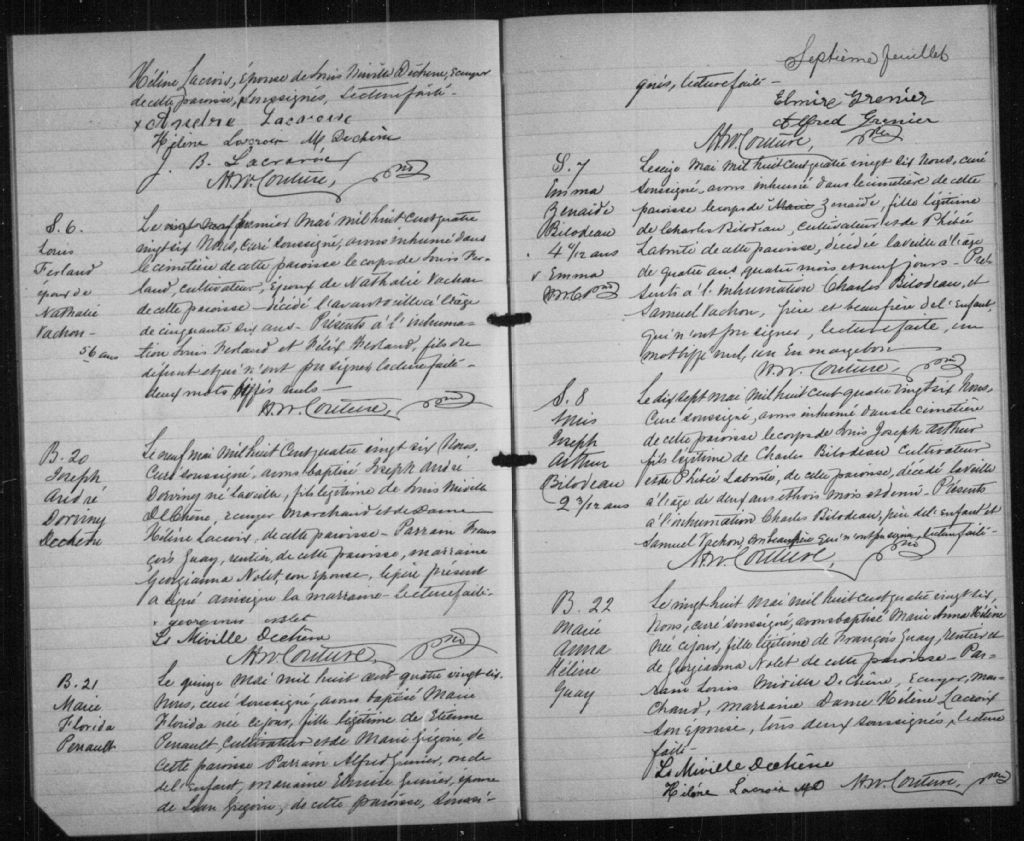 Hélène Lacroix, Épouse de Louis Miville Dechene, Ecuyer
de cette paroisse, soussignés, Lecture faite -
+ André Lacroix
Hélène Lacroix M Dechène
J. B. Lacroix
Couture, ptre
S. 6.
Louis
Ferland
époux de
Nathalie
Vachon -
56 ans
Le premier Mai Mil huit cent quatre
vingt six Nous, curé soussigné, avons inhumé dans
le cimetière de cette paroisse le corps de Louis Fer-
land, cultivateur, Époux de Nathalie Vachon
de cette paroisse - décédé l'avant veille à l'âge
de cinquante six ans - Présents à l'inhuma-
tion Louis Ferland et Félix Ferland, fils du
défunt et qui n'ont pu signer lecture faite -
deux mots nuls -
Couture, ptre
B. 20
Joseph
André
Dechène
Le neuf Mai Mil huit Cent quatre vingt six Nous,
Curé soussigné, avons baptisé Joseph André
né la veille, fils légitime de Louis Miville
DeChène, Ecuyer Marchand et de Dame
Hélène Lacroix, de cette paroisse - Parrain Fran
çois Guay, rentier, de cette paroisse, marraine
Georgianna Nolet, son Épouse, le père présent
a signé ainsi que la marraine - Lecture faite -
Ls Miville Dechène
Couture, ptre
B. 21
Marie
Florida
Perrault
Le quinze Mai mil huit cent quatre vingt-six
Nous, curé soussigné avons baptisé Marie
Florida née ce jour, fille légitime de Etienne
Perrault, cultivateur et de Marie Grégoire, de
cette paroisse Parrain Alfred Grenier, oncle
de l'Enfant, marraine Elmire Grenier, épouse
de Jean Grégoire, de cette paroisse, soussi-
Septième feuillet
gnés, lecture faite -
Elmire Grenier
Alfred Grenier
Couture, ptre
S. 7
Emma
Zenaïde
Bilodeau
4 4/12 ans
+ Emma
Le seize Mai Mil huit cent quatre vingt six Nous, curé
soussigné, avons inhumé dans le cimetière de cette
paroisse le corps de Marie Zenaïde, fille légitime
de Charles Bilodeau, Cultivateur et de Phébée
Labonté de cette paroisse, décédée la veille à l'âge
de quatre ans quatre mois et neuf jours - Pré-
sents à l'inhumation Charles Bilodeau, et
Samuel Vachon, père et beau frère de l'Enfant,
qui n'ont pu signer, lecture faite, un
mot biffé nul, un En marge bon
Couture, ptre
S. 8
Louis
Joseph
Arthur
Bilodeau
2 3/12 ans
Le dix sept Mai Mil huit Cent quatre vingt six Nous,
Curé soussigné, avons inhumé dans le cimetière
de cette paroisse le corps de Louis Joseph Arthur
fils légitime de Charles Bilodeau Cultivateur
et de Phébée Labonté, de cette paroisse, décédé la veille
à l'âge de deux ans et trois mois et demi - Présents
à l'inhumation Charles Bilodeau, père de l'Enfant et
Samuel Vachon, son beau frère qui n'ont pu signer, lecture faite -
Couture,
B. 22
Marie
Anna
Hélène
Guay
Le vingt huit Mai Mil huit cent quatre vingt six,
Nous, curé soussigné, avons baptisé Marie Anna Hélène
Née ce jour, fille légitime de François Guay, rentier et
de Georgianna Nolet de cette paroisse - Par-
rain Louis Miville DeChène, Ecuyer, mar-
chand, marraine Dame Hélène Lacroix
son Épouse, tous deux soussignés, lecture
faite -
Ls Miville Dechène
Hélène Lacroix MD Couture, ptre